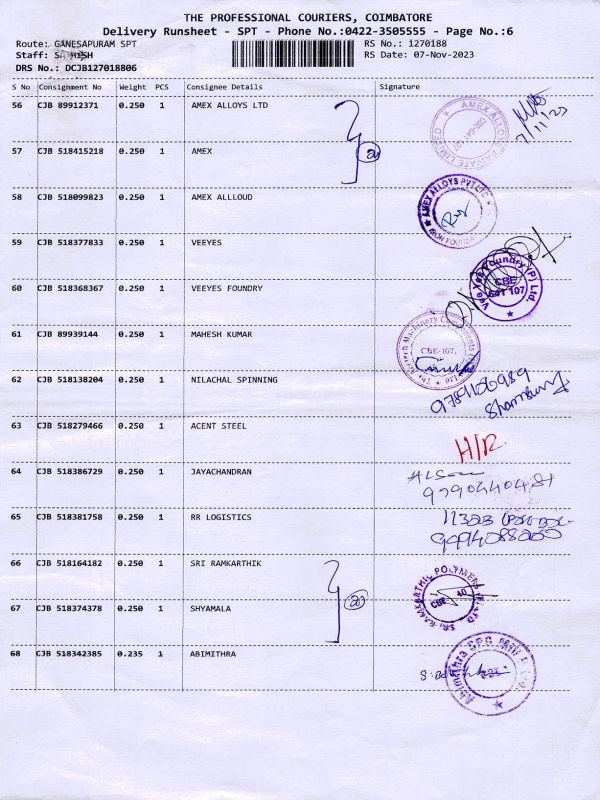 THE PROFESSIONAL COURIERS, COIMBATORE
Delivery Runsheet - SPT - Phone No.:0422-3505555 - Page No.:6
Route: GANESAPURAM SPT RS No.: 1270188
Staff: RS Date: 07-Nov-2023
DRS No.: DCJB127018806
S No Consignment No Weight PCS Consignee Details Signature
56 CJB 89912371 0.250 1 AMEX ALLOYS LTD
7/11/23
57 CJB 518415218 0.250 1 AMEX
58 CJB 518099823 0.250 1 AMEX ALLLOUD
AMEX ALLOYS PVT LTD
59 CJB 518377833 0.250 1 VEEYES
60 CJB 518368367 0.250 1 VEEYES FOUNDRY
Vee Yee Foundry (P) Ltd.
CBE
641 107
61 CJB 89939144 0.250 1 MAHESH KUMAR
CBE-107.
62 CJB 518138204 0.250 1 NILACHAL SPINNING
63 CJB 518279466 0.250 1 ACENT STEEL
64 CJB 518386729 0.250 1 JAYACHANDRAN
65 CJB 518381758 0.250 1 RR LOGISTICS
66 CJB 518164182 0.250 1 SRI RAMKARTHIK
67 CJB 518374378 0.250 1 SHYAMALA
68 CJB 518342385 0.235 1 ABIMITHRA